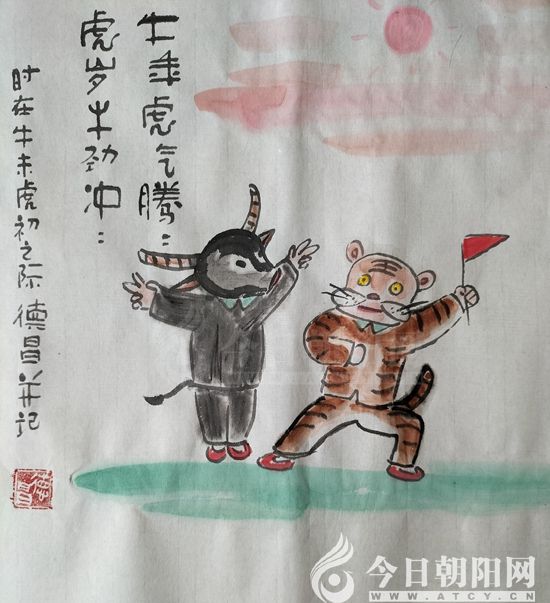 牛年虎气腾：
虎岁牛劲冲：
时在牛末虎初之际 德昌并记
德昌
今日朝阳网
WWW.ATCY.CN